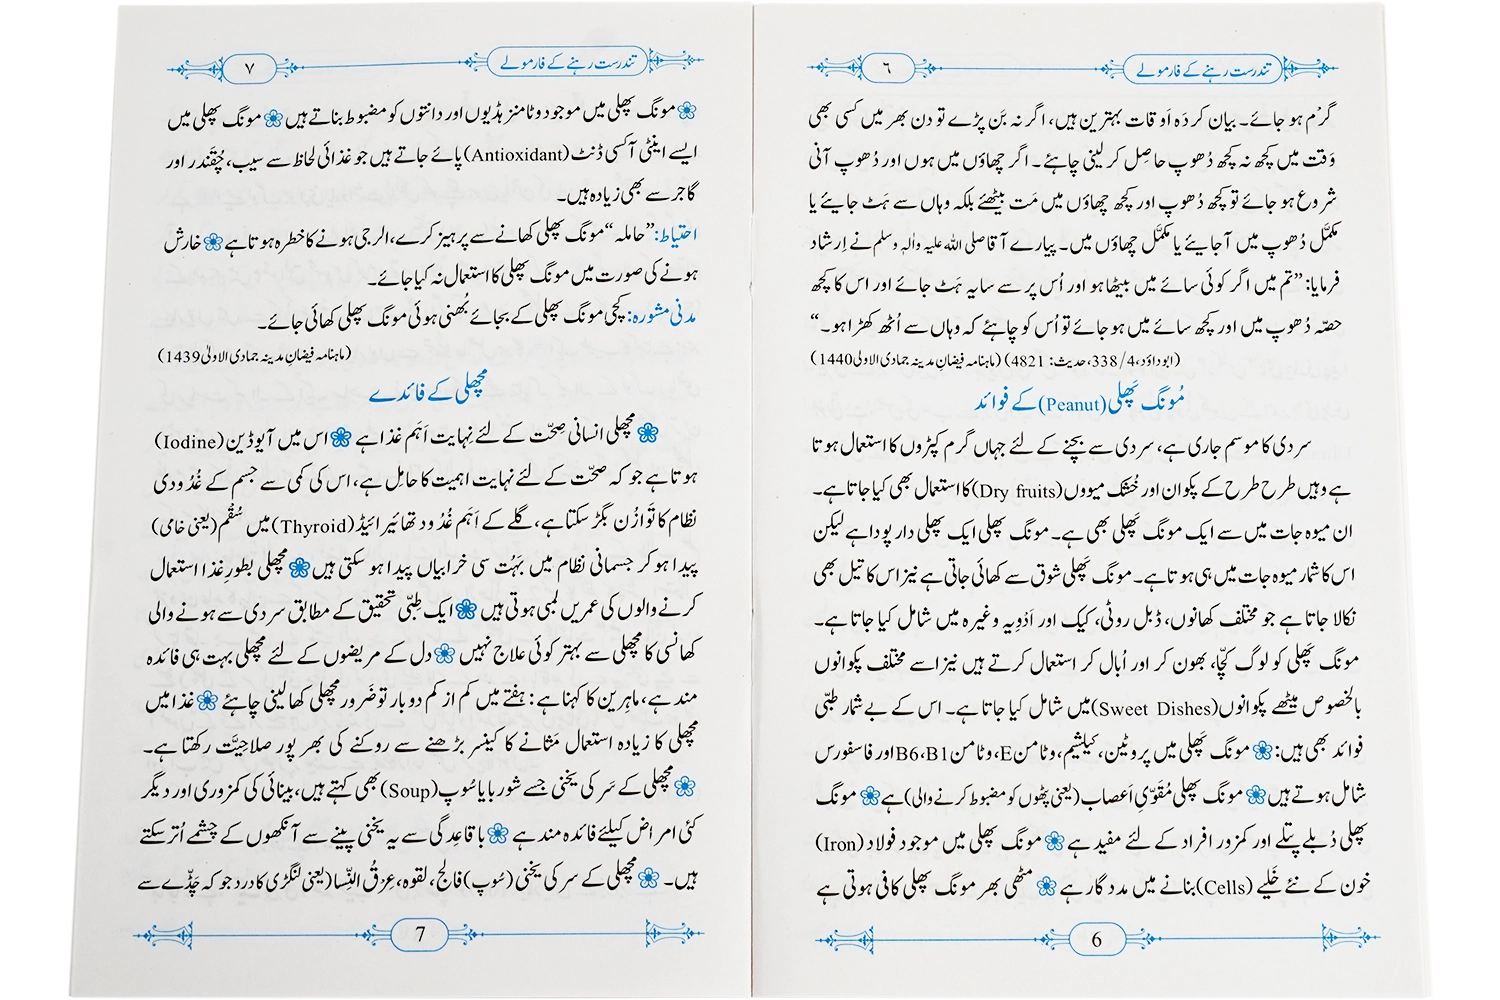 تندرست رہنے کے فارمولے
٦
گرْم ہو جائے۔ بیان کردَہ اَوقات بہترین ہیں، اگر نہ بَن پڑے تو دن بھر میں کسی بھی
وَقت میں کچھ نہ کچھ دُھوپ حاصِل کر لینی چاہئے۔ اگر چھاؤں میں ہوں اور دُھوپ آنی
شروع ہو جائے تو کچھ دُھوپ اور کچھ چھاؤں میں مَت بیٹھئے بلکہ وہاں سے ہَٹ جایئے یا
مکمَّل دُھوپ میں آجایئے یا مکمَّل چھاؤں میں۔ پیارے آقا صلی اللہ علیہ واٰلہٖ وسلم نے اِرشاد
فرمایا: ”تم میں اگر کوئی سائے میں بیٹھا ہو اور اُس پر سے سایہ ہَٹ جائے اور اس کا کچھ
حصّہ دُھوپ میں اور کچھ سائے میں ہو جائے تو اُس کو چاہئے کہ وہاں سے اُٹھ کھڑا ہو۔“
(ابو داؤد، 4/338، حدیث: 4821) (ماہنامہ فیضانِ مدینہ جمادی الاولی 1440)
مُونگ پَھلی (Peanut) کے فوائد
سردی کا موسم جاری ہے، سردی سے بچنے کے لئے جہاں گرم کپڑوں کا استعمال ہوتا
ہے وہیں طرح طرح کے پکوان اور خُشک میووں (Dry fruits) کا استعمال بھی کیا جاتا ہے۔
ان میوہ جات میں سے ایک مونگ پَھلی بھی ہے۔ مونگ پھلی ایک پھلی دار پودا ہے لیکن
اس کا شمار میوہ جات میں ہی ہوتا ہے۔ مونگ پَھلی شوق سے کھائی جاتی ہے نیز اس کا تیل بھی
نکالا جاتا ہے جو مختلف کھانوں، ڈبل روٹی، کیک اور اَدْوِیہ وغیرہ میں شامل کیا جاتا ہے۔
مونگ پَھلی کو لوگ کچّا، بھون کر اور اُبال کر استعمال کرتے ہیں نیز اسے مختلف پکوانوں
بالخصوص میٹھے پکوانوں (Sweet Dishes) میں شامل کیا جاتا ہے۔ اس کے بے شمار طِبّی
فوائد بھی ہیں: ❀ مونگ پَھلی میں پروٹین، کیلشیم، وٹامن E، وٹامن B6،B1 اور فاسفورس
شامل ہوتے ہیں ❀ مونگ پھلی مُقَوِّیِ اَعصاب (یعنی پٹھوں کو مضبوط کرنے والی) ہے ❀ مونگ
پھلی دُبلے پتلے اور کمزور افراد کے لئے مفید ہے ❀ مونگ پھلی میں موجود فولاد (Iron)
خون کے نئے خَلیے (Cells) بنانے میں مددگار ہے ❀ مٹھی بھر مونگ پھلی کافی ہوتی ہے
6
تندرست رہنے کے فارمولے
٧
❀ مونگ پھلی میں موجود وٹامنز ہڈیوں اور دانتوں کو مضبوط بناتے ہیں ❀ مونگ پھلی میں
ایسے اینٹی آکسی ڈنٹ (Antioxidant) پائے جاتے ہیں جو غذائی لحاظ سے سیب، چُقَندر اور
گاجر سے بھی زیادہ ہیں۔
احتیاط: ”حاملہ“ مونگ پھلی کھانے سے پرہیز کرے، الرجی ہونے کا خطرہ ہوتا ہے ❀ خارش
ہونے کی صورت میں مونگ پھلی کا استعمال نہ کیا جائے۔
مدنی مشورہ: کچی مونگ پھلی کے بجائے بُھنی ہوئی مونگ پھلی کھائی جائے۔
(ماہنامہ فیضانِ مدینہ جمادی الاولیٰ 1439)
مچھلی کے فائدے
❀ مچھلی انسانی صِحّت کے لئے نِہایت اَہَم غذا ہے ❀ اس میں آیوڈین (Iodine)
ہوتا ہے جو کہ صحّت کے لئے نہایت اہمیت کا حامِل ہے، اس کی کمی سے جسم کے غُدُودی
نظام کا تَوازُن بگڑ سکتا ہے، گلے کے اَہَم غُدُود تھائیرائیڈ (Thyroid) میں سُقْم (یعنی خامی)
پیدا ہو کر جسمانی نظام میں بَہُت سی خرابیاں پیدا ہو سکتی ہیں ❀ مچھلی بطورِ غذا استعمال
کرنے والوں کی عمریں لمبی ہوتی ہیں ❀ ایک طِبّی تحقیق کے مطابق سردی سے ہونے والی
کھانسی کا مچھلی سے بہتر کوئی علاج نہیں ❀ دل کے مریضوں کے لئے مچھلی بہت ہی فائدہ
مند ہے، ماہِرین کا کہنا ہے: ہفتے میں کم از کم دو بار تو ضَرور مچھلی کھا لینی چاہئے ❀ غذا میں
مچھلی کا زیادہ استعمال مَثانے کا کینسر بڑھنے سے روکنے کی بھر پور صلاحِیَّت رکھتا ہے۔
❀ مچھلی کے سَر کی یخنی جسے شوربا یا سُوپ (Soup) بھی کہتے ہیں، بینائی کی کمزوری اور دیگر
کئی امراض کیلئے فائدہ مند ہے ❀ باقاعِدگی سے یہ یخنی پینے سے آنکھوں کے چشمے اُتر سکتے
ہیں۔ ❀ مچھلی کے سر کی یخنی (سُوپ) فالج، لقوہ، عِرْقُ النِّسا (یعنی لنگڑی کا درد جو کہ چَڈّے سے
7